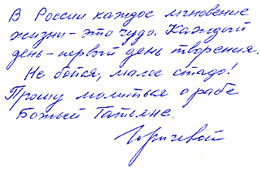 В России каждое мгновение
жизни – это чудо. Каждый
день – первый день творения.
Не бойся, малое стадо!
Прошу молиться о рабе
Божьей Татьяне.
Горичевой